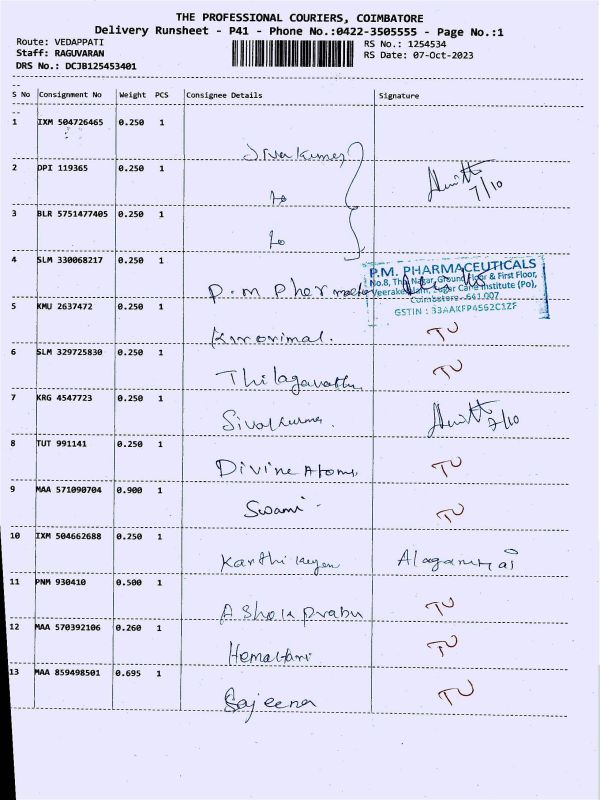 THE PROFESSIONAL COURIERS, COIMBATORE
Delivery Runsheet - P41 - Phone No.:0422-3505555 - Page No.:1
Route: VEDAPPATI RS No.: 1254534
Staff: RAGUVARAN RS Date: 07-Oct-2023
DRS No.: DCJB125453401
S No Consignment No Weight PCS Consignee Details Signature
1 IXM 504726465 0.250 1 Sivakumar
2 DPI 119365 0.250 1 7/10
3 BLR 5751477405 0.250 1
4 SLM 330068217 0.250 1 P.m Pharma
P.M. PHARMACEUTICALS
No.8, Nagar, Ground Floor & First Floor,
Veerakeralam, Sugar Cane Institute (Po),
Coimbatore - 641 007
GSTIN : 33AAKFP4562C1ZF
5 KMU 2637472 0.250 1 TU
6 SLM 329725830 0.250 1 Thilagavathi TU
7 KRG 4547723 0.250 1 Sivakumar 7/10
8 TUT 991141 0.250 1 Divine Atoms TU
9 MAA 571090704 0.900 1 Swami TU
10 IXM 504662688 0.250 1 Karthikeyan
11 PNM 930410 0.500 1 Ashok prabu TU
12 MAA 570392106 0.260 1 TU
13 MAA 859498501 0.695 1 Sajeena TU